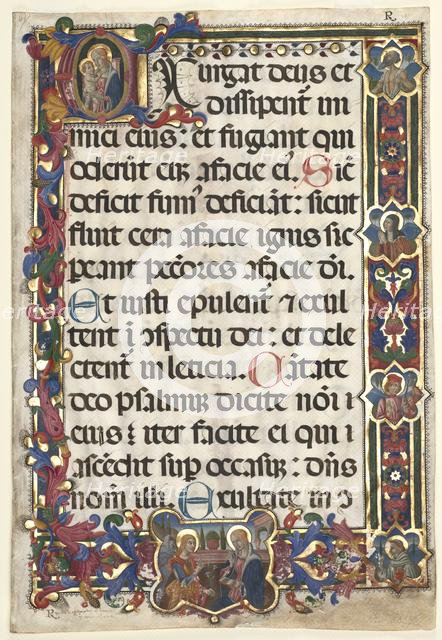 R.
Exurgat deus et
dissipent̄ ini
mici eius: et fugiant qui
oderūt eū afacie eī. Sic
deficit fum' deficiāt: sicut
fluit cera afacie ignis sic
peant pctōres afacie dī.
Et iusti epulent̄ ⁊ exul
tent ī ↄspectu dei: et dele
ctent̄ in leticia. Cātate
deo psalmū dicite nōi ī
eius: iter facite ei qui ī
ascēdit sup occasū: dn̄s
nom̄ illi. Exultate in ↄ
R